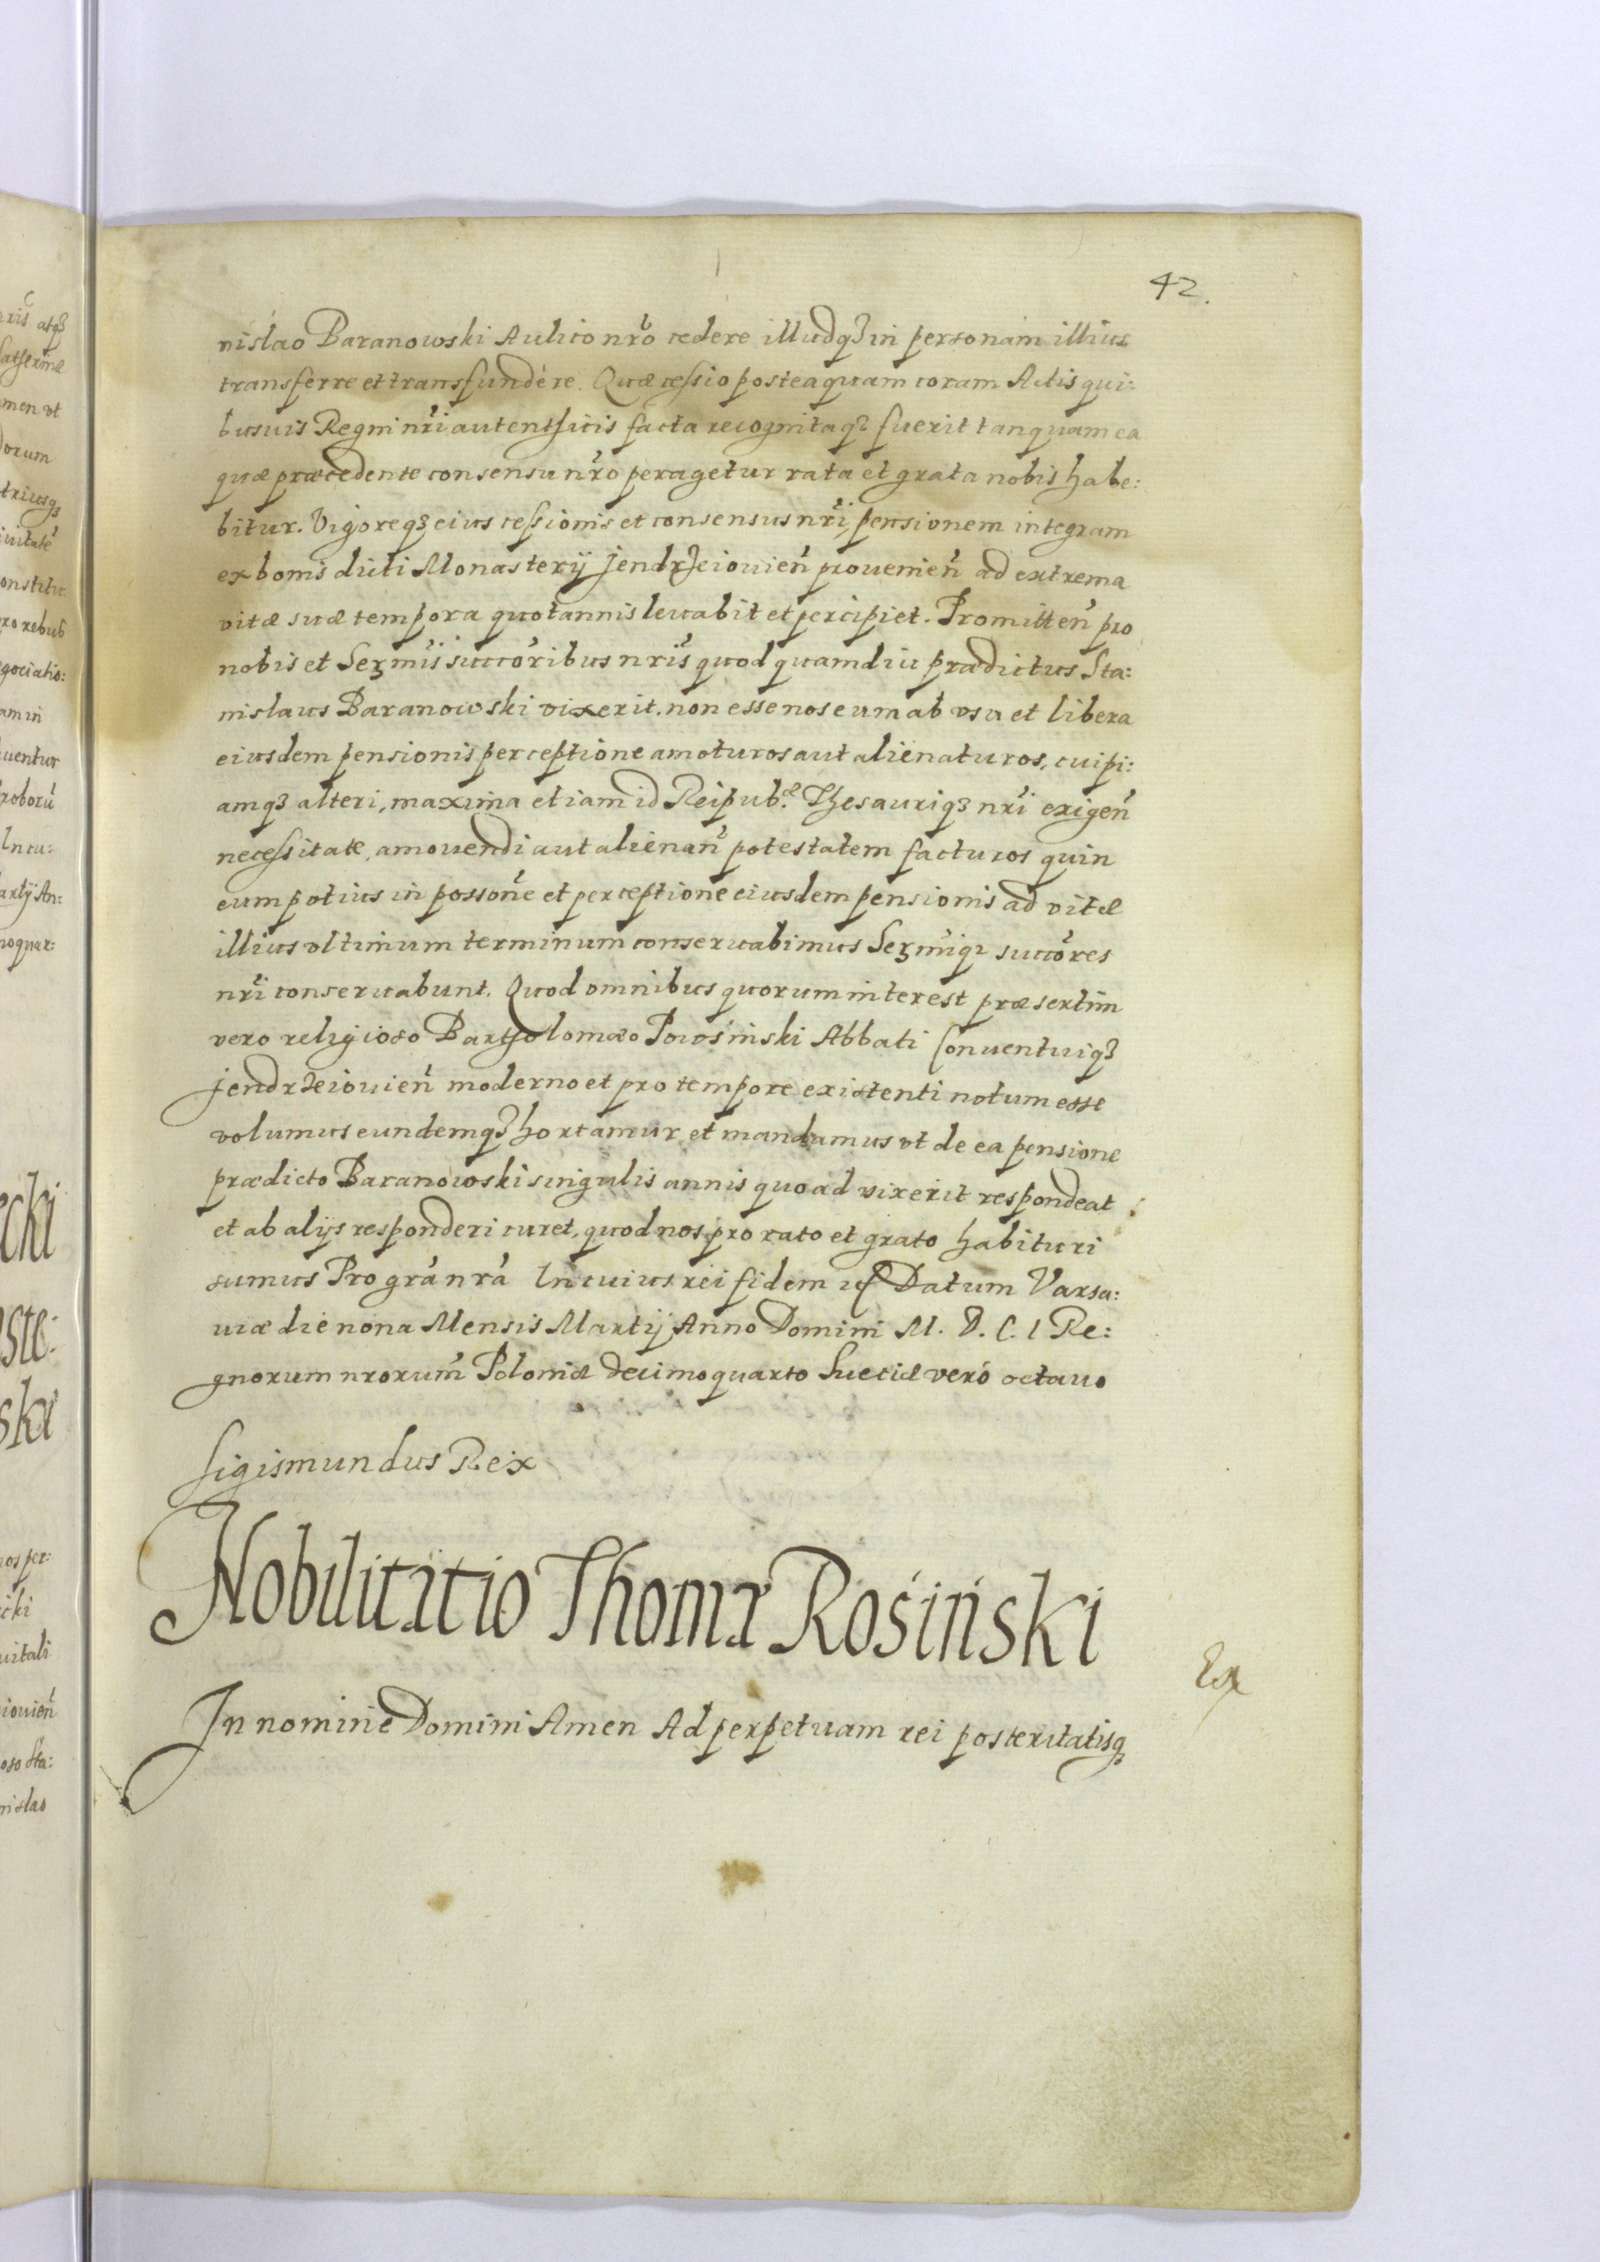 42.
nislao Baranowski Aulico nr̃o cedere illudqȝ in personam illius
transferre et transfundere. Quæ cessio posteaquam coram Actis qui:
busuis Regni nr̃i autenthicis facta recognitaqȝ fuerit tanquam ea
quæ præcedente consensu nr̃o peragetur rata et grata nobis habe:
bitur. Vigoreqȝ eius cessionis et consensus nr̃i, pensionem integram
ex bonis dicti Monasterij Jendrzeiouien̄ prouenien̄ ad extrema
vitæ suæ tempora quotannis leuabit et percipiet. Promitten̄ pro
nobis et Serm̃is succõribus nr̃is quod quamdiu prædictus Sta:
nislaus Baranowski vixerit. non esse nos eum ab vsu et libera
eiusdem pensionis perceptione amoturos aut alienaturos, cuipi:
amqȝ alteri, maxima etiam id Reipub.æ Thesauriqȝ nr̃i exigen̄
necessitate, amouendi aut alienan̄ potestatem facturos quin
eum potius in posson̄e et perceptione eiusdem pensionis ad vitæ
illius vltimum terminum conseruabimus Serm̃iqȝ succõres
nr̃i conseruabunt. Quod omnibus quorum interest præsertim
vero religioso Bartholomæo Powsinski Abbati Conuentuiqȝ
Jendrzeiouien̄ moderno et pro tempore existenti notum esse
volumus eundemqȝ hortamur et mandamus vt de ea pensione
prædicto Baranowski singulis annis quoad vixerit respondeat
et ab alijs responderi curet, quod nos pro rato et grato habituri
sumus Pro grã nrã In cuius rei fidem Datum Varsa:
uiæ die nona Mensis Martij Anno Domini M. D. C. I Re:
gnorum nrorum̃ Poloniæ decimoquarto Sueciæ veró octauo
Sigismundus Rex
Nobilitatio Thomæ Rośiński
In nomine Domini Amen Ad perpetuam rei posteritatisqȝ